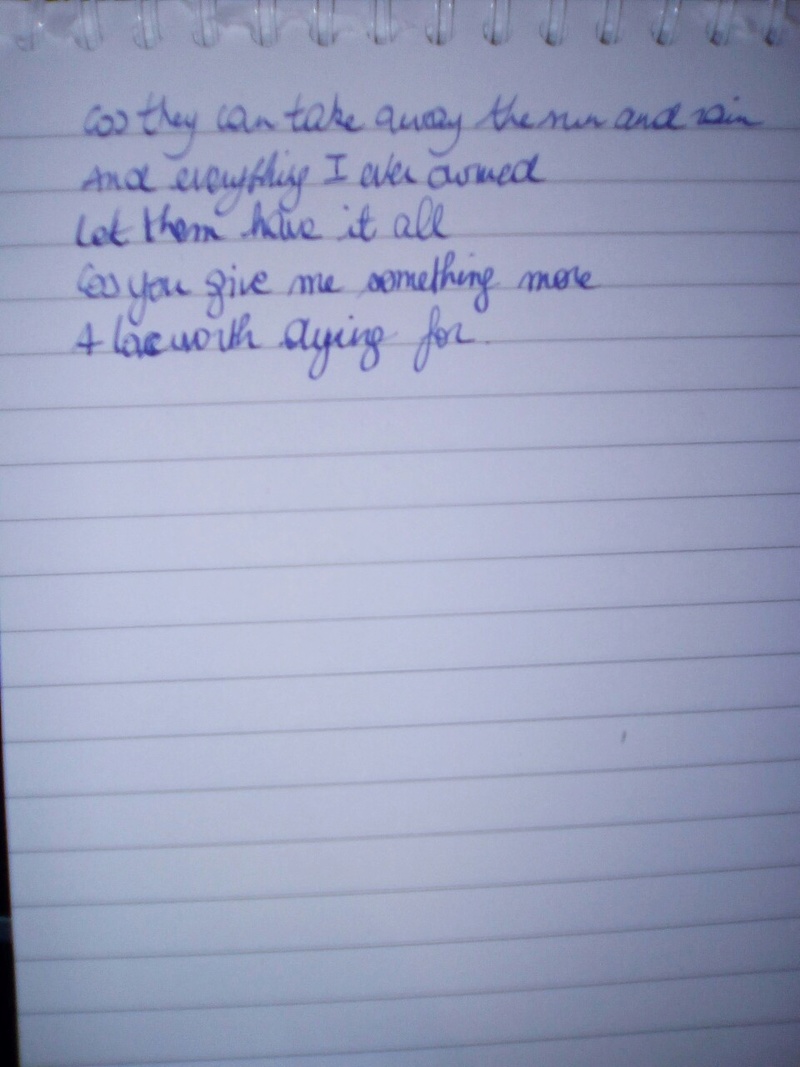 Cos they can take away the sun and rain
And everything I ever owned
Let them have it all
Cos you give me something more
A love worth dying for.